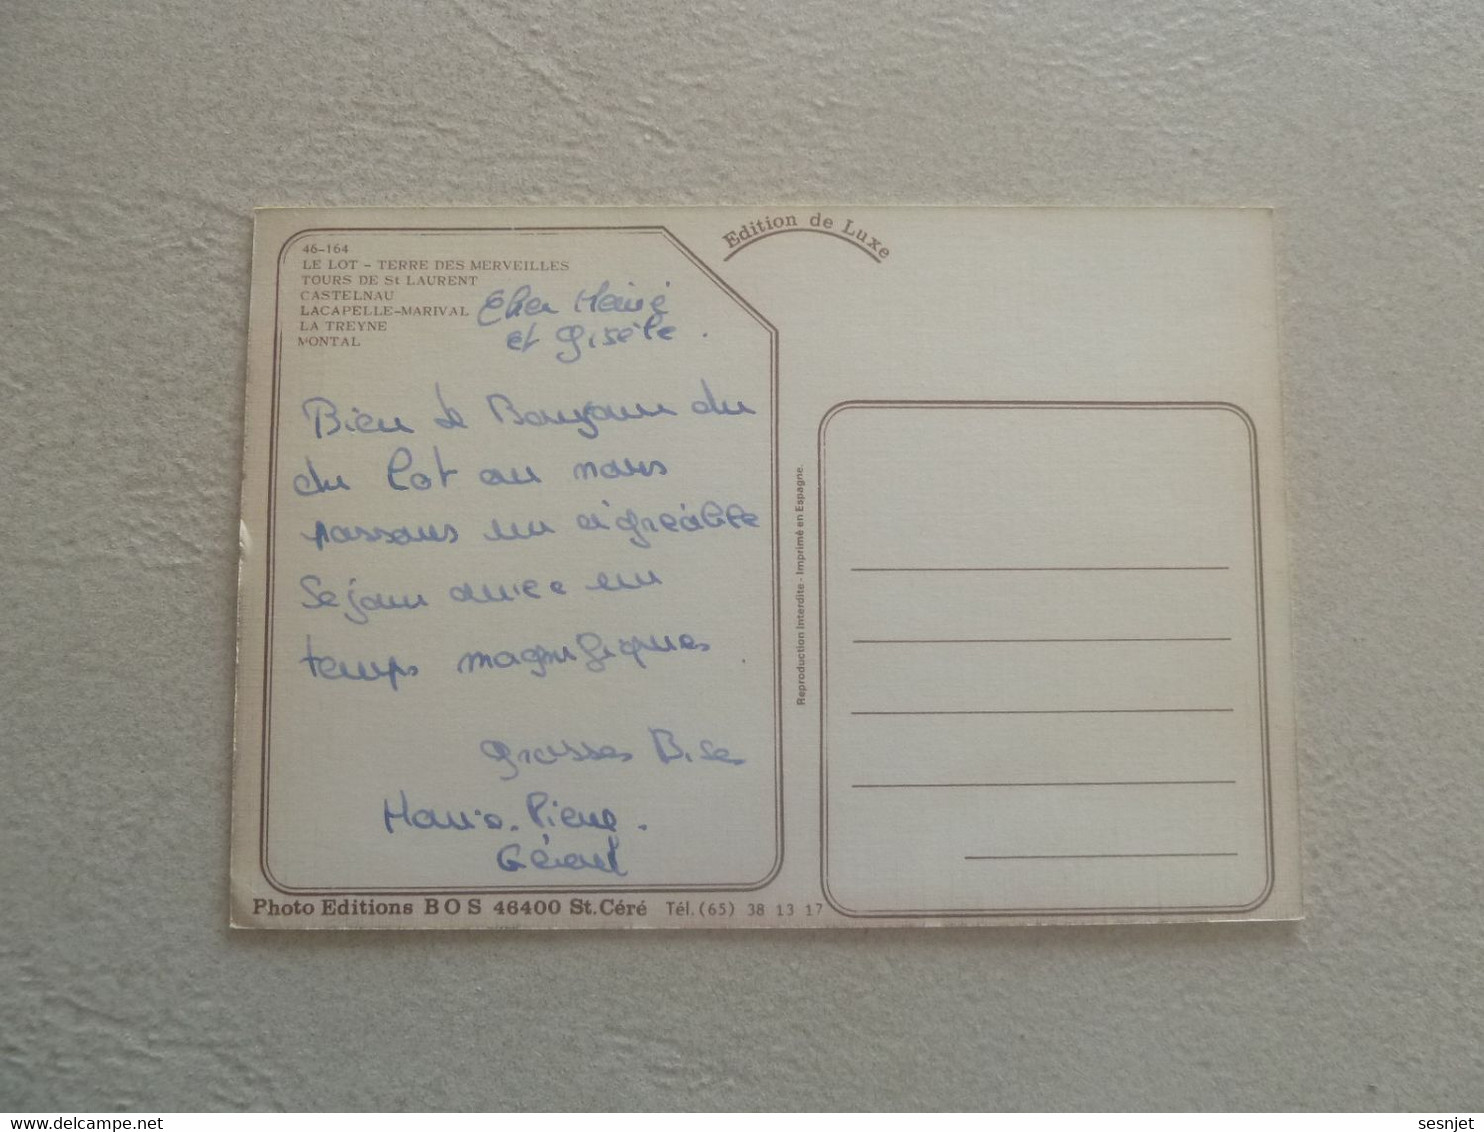 Edition de Luxe
46-164
LE LOT - TERRE DES MERVEILLES
TOURS DE St LAURENT
CASTELNAU
LACAPELLE-MARIVAL
LA TREYNE
MONTAL
Cher
et Gisèle.
Bien le Bonjour du
du Lot ou nous
passons un agréable
Sejour avec un
temps magnifiques.
Grosses Bises
Marie. Pierre.
Gérard
Reproduction Interdite - Imprimé en Espagne.
Photo Editions BOS 46400 St. Céré Tél. (65) 38 13 17
sesnjet
delcampe.net